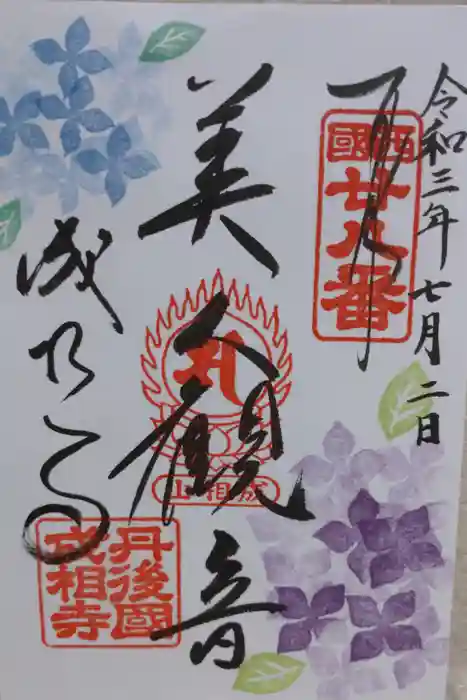 令和三年七月二日
西國廿八番
美人観音
成相山
成相寺
丹後國
成相寺